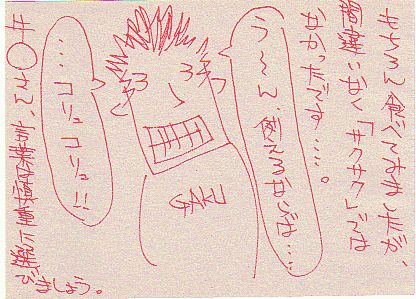 もちろん食べてみましたが、
間違いなく「サクサク」では
なかったです……。
う〜ん、例えるならば……
……コリュコリュ!!
井○さん、
ましょう。